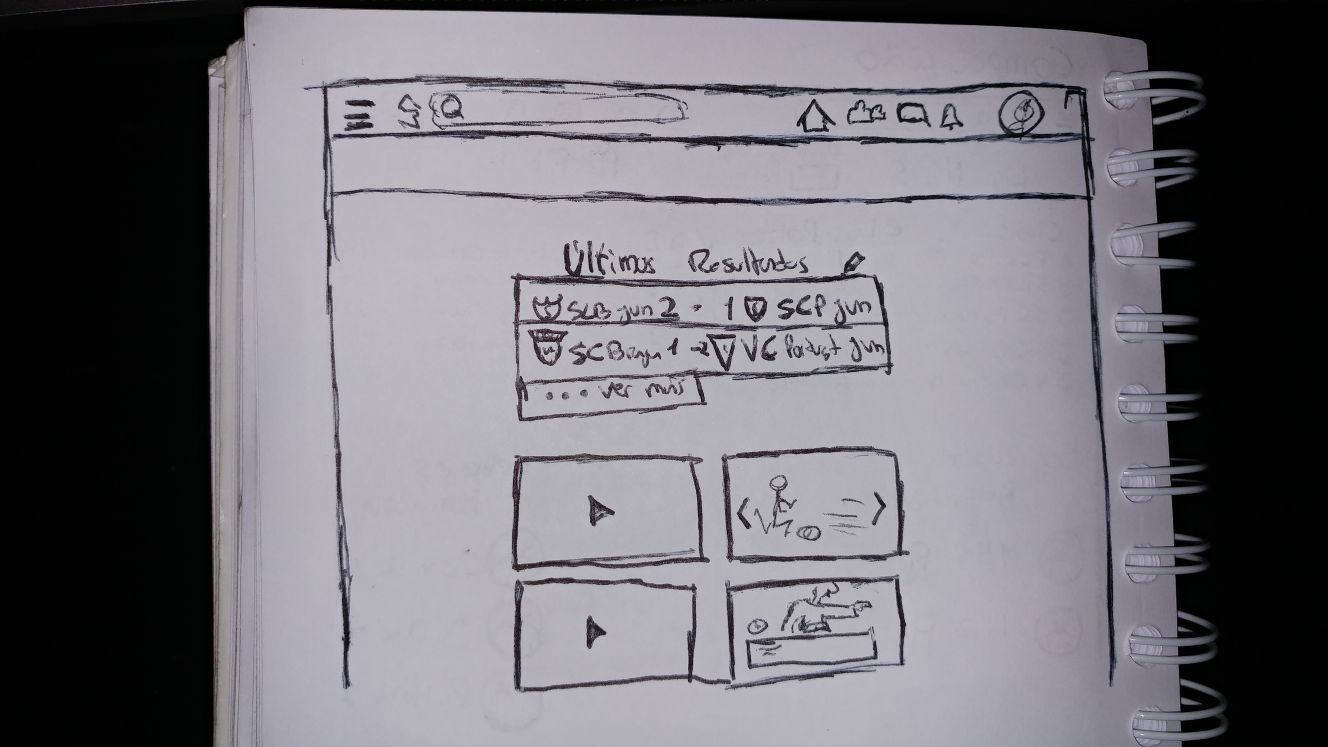 Últimos Resultados
SLB jun 2 - 1 SCP jun
SCBraga 1 - 2 VC jun
... ver mais